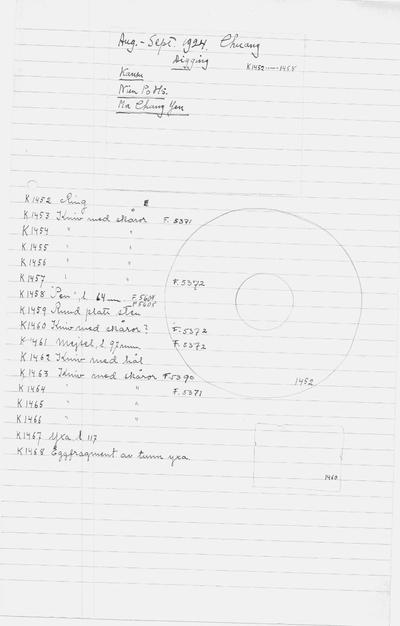 Aug. - Sept. 1924. Chuang
Digging
K1452 — 1468
Kansu
Nien Po Hs.
Ma Chang Yen
K1452 Ring
K1453 Kniv med skåror F. 5371
K1454 " "
K1455 " "
K1456 " "
K1457 " " F. 5372
K1458 "Pen", l. 64 F. 5604
F 5605
K1459 Rund platt sten
K1460 Kniv med skåror? F. 5372
K1461 Mejsel, l. 92mm F. 5372
K1462 Kniv med hål
K1463 Kniv med skåror F 5390
K1464 " " F. 5371
K1465 " "
K1466 " "
K1467 Yxa l 117
K1468 Eggfragment av tunn yxa
1452
1460